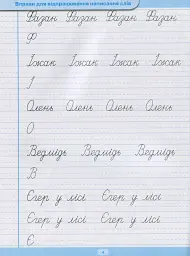 Вправи для відпрацювання написання слів
Фазан Фазан Фазан Фазан
Ф
Їжак Їжак Їжак Їжак
Ї
Олень Олень Олень Олень
О
Ведмідь Ведмідь Ведмідь
В
Єгер у лісі Єгер у лісі
Єгер у лісі Єгер у лісі
Є